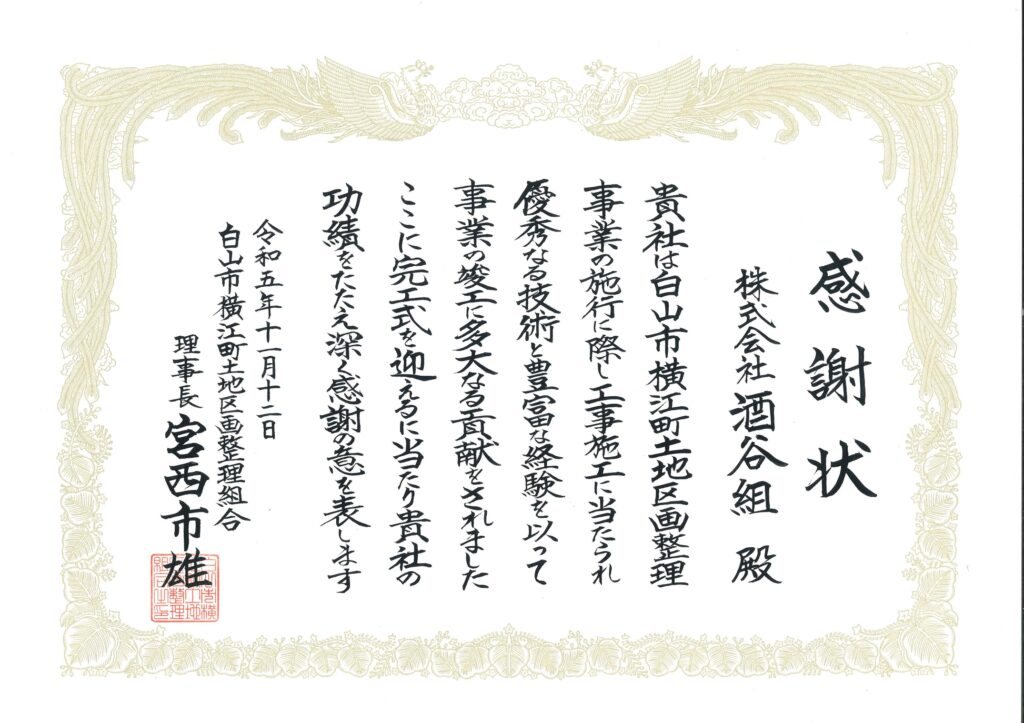 感謝状
株式会社 酒谷組 殿
貴社は白山市横江町土地区画整理
事業の施行に際し工事施工に当たられ
優秀なる技術と豊富な経験を以って
事業の竣工に多大なる貢献をされました
ここに完工式を迎えるに当たり貴社の
功績をたたえ深く感謝の意を表します
令和五年十一月十二日
白山市横江町土地区画整理組合
理事長 宮西市雄